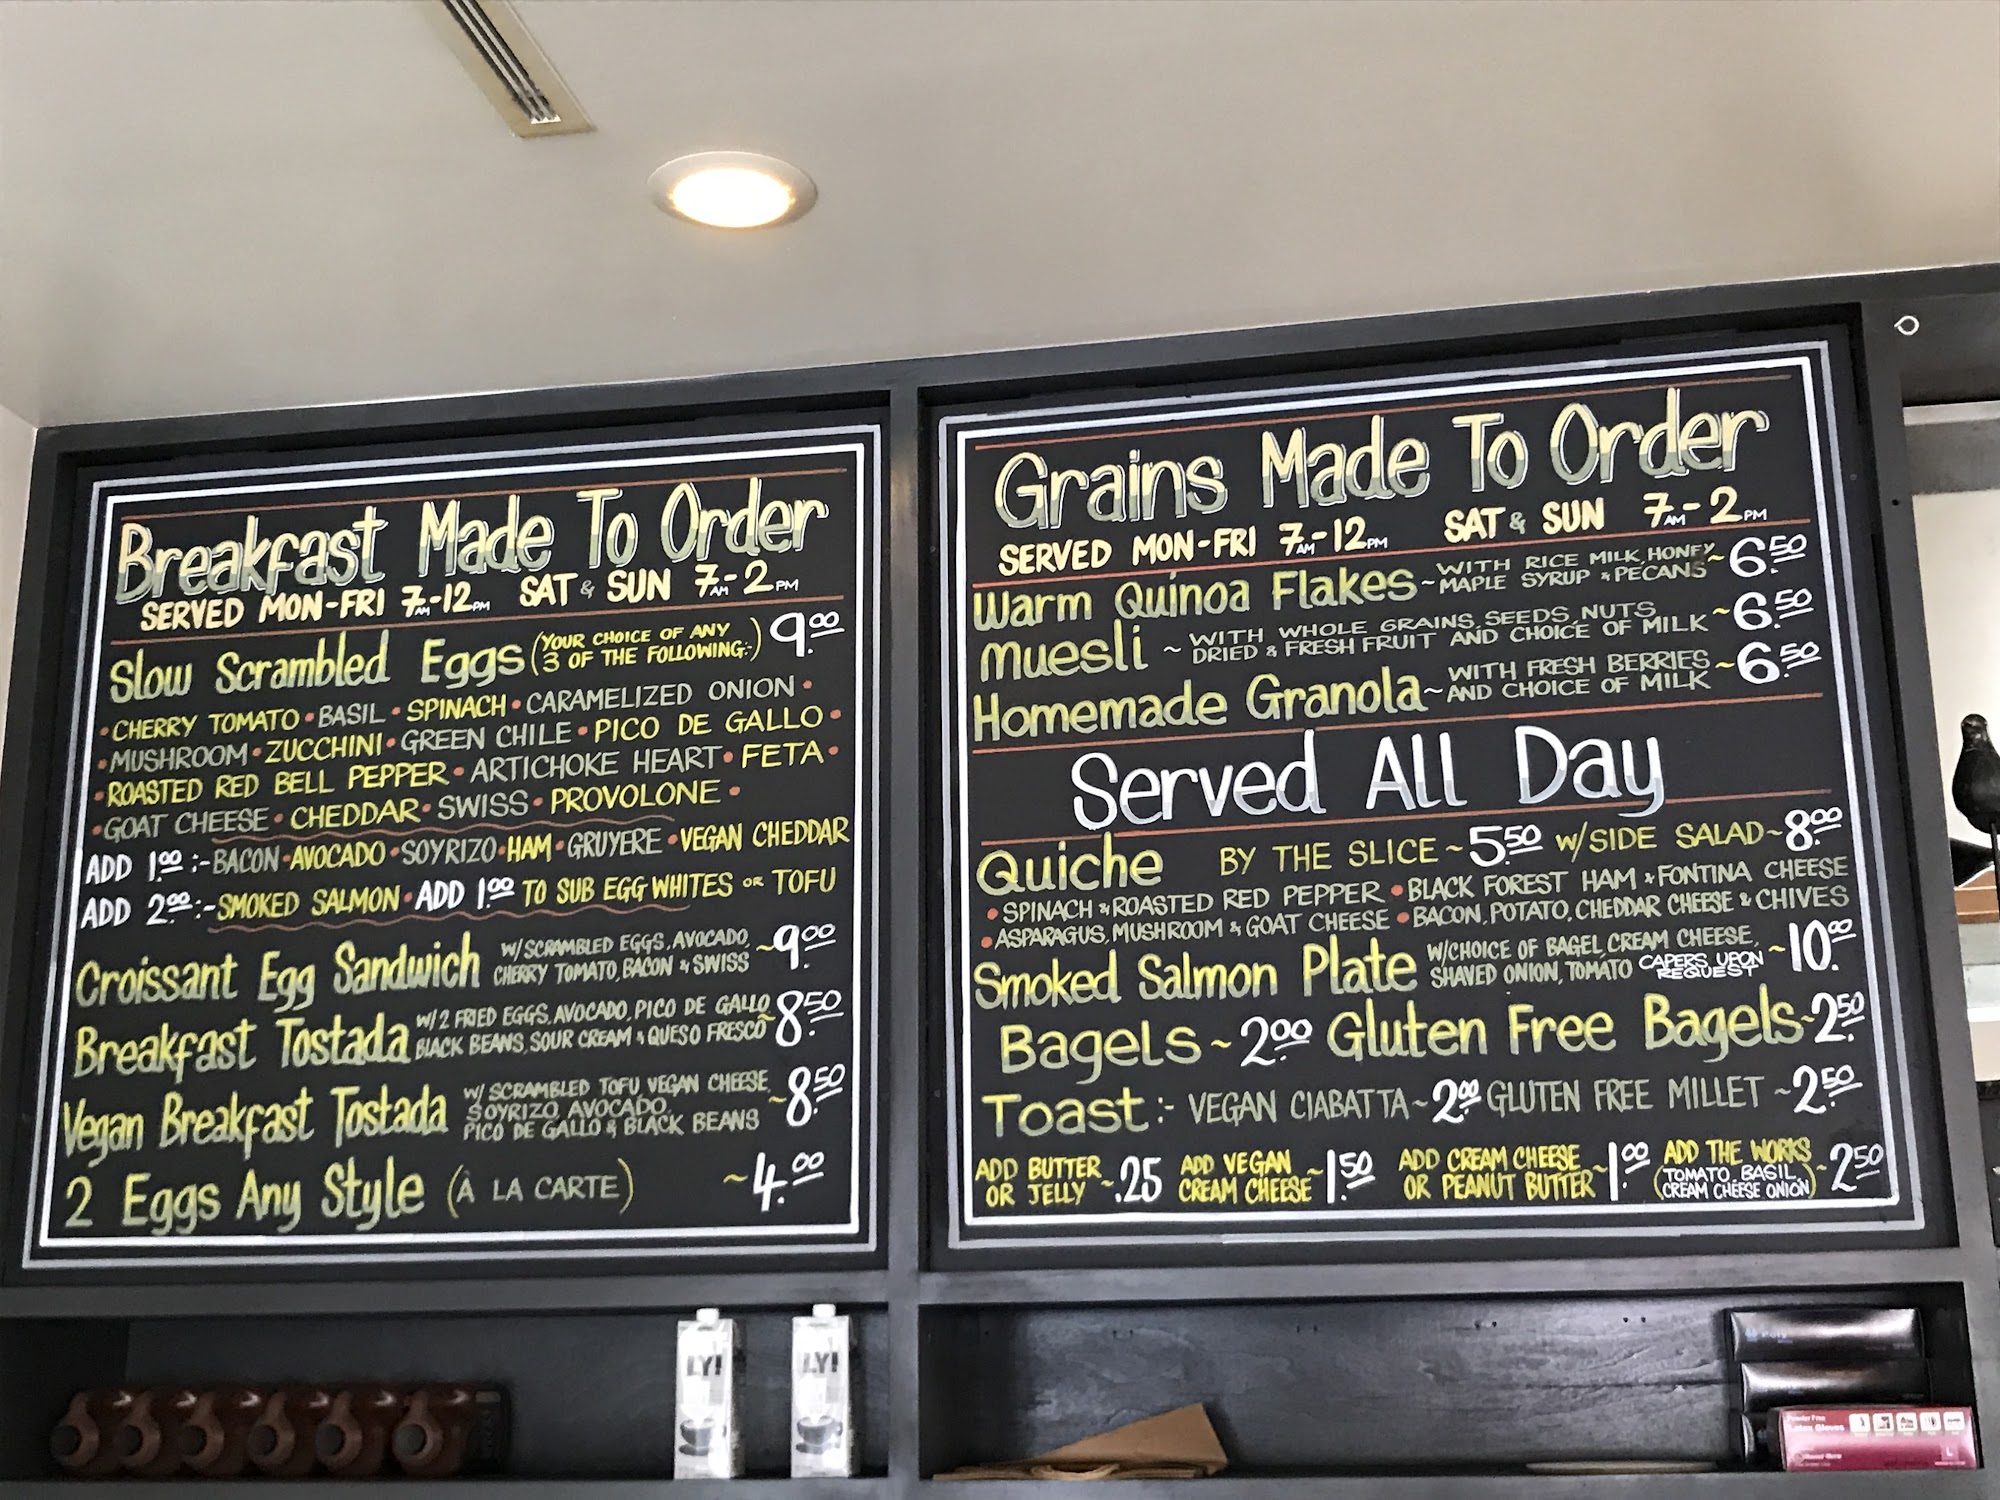 Breakfast Made To Order
SERVED MON-FRI 7AM-12PM SAT & SUN 7AM-2PM
Slow Scrambled Eggs (YOUR CHOICE OF ANY 3 OF THE FOLLOWING:-) 9.00
• CHERRY TOMATO • BASIL • SPINACH • CARAMELIZED ONION •
• MUSHROOM • ZUCCHINI • GREEN CHILE • PICO DE GALLO •
• ROASTED RED BELL PEPPER • ARTICHOKE HEART • FETA •
• GOAT CHEESE • CHEDDAR • SWISS • PROVOLONE •
ADD 1.00 :- BACON • AVOCADO • SOYRIZO • HAM • GRUYERE • VEGAN CHEDDAR
ADD 2.00 :- SMOKED SALMON • ADD 1.00 TO SUB EGG WHITES OR TOFU
Croissant Egg Sandwich W/SCRAMBLED EGGS, AVOCADO, CHERRY TOMATO, BACON & SWISS ~9.00
Breakfast Tostada W/2 FRIED EGGS, AVOCADO, PICO DE GALLO BLACK BEANS, SOUR CREAM & QUESO FRESCO ~8.50
Vegan Breakfast Tostada W/ SCRAMBLED TOFU, VEGAN CHEESE, SOYRIZO, AVOCADO, PICO DE GALLO & BLACK BEANS ~8.50
2 Eggs Any Style (À LA CARTE) ~4.00
Grains Made To Order
SERVED MON-FRI 7AM-12PM SAT & SUN 7AM-2PM
Warm Quinoa Flakes ~ WITH RICE MILK, HONEY MAPLE SYRUP & PECANS ~6.50
Muesli ~ WITH WHOLE GRAINS, SEEDS, NUTS DRIED & FRESH FRUIT AND CHOICE OF MILK ~6.50
Homemade Granola ~ WITH FRESH BERRIES AND CHOICE OF MILK ~6.50
Served All Day
Quiche BY THE SLICE ~5.50 W/SIDE SALAD ~8.00
• SPINACH & ROASTED RED PEPPER • BLACK FOREST HAM & FONTINA CHEESE
• ASPARAGUS, MUSHROOM & GOAT CHEESE • BACON, POTATO, CHEDDAR CHEESE & CHIVES
Smoked Salmon Plate W/CHOICE OF BAGEL, CREAM CHEESE, SHAVED ONION, TOMATO CAPERS UPON REQUEST ~10.00
Bagels ~2.00 Gluten Free Bagels ~2.50
Toast :- VEGAN CIABATTA ~2.00 GLUTEN FREE MILLET ~2.50
ADD BUTTER OR JELLY ~.25 ADD VEGAN CREAM CHEESE ~1.50 ADD CREAM CHEESE OR PEANUT BUTTER ~1.00 ADD THE WORKS (TOMATO, BASIL, CREAM CHEESE ONION) ~2.50
LY!
LY!
Powder Free
Latex Gloves
L